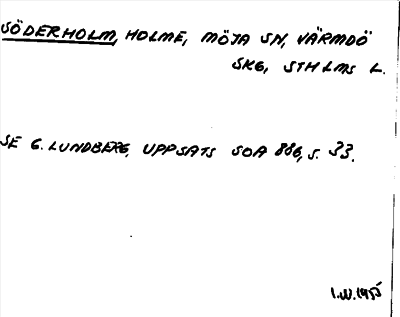 SÖDERHOLM, HOLME, MÖJA SN, VÄRMDÖ
SKG, STHLMS L.
SE G. LUNDBERG, UPPSATS SOA 886, S. 33.